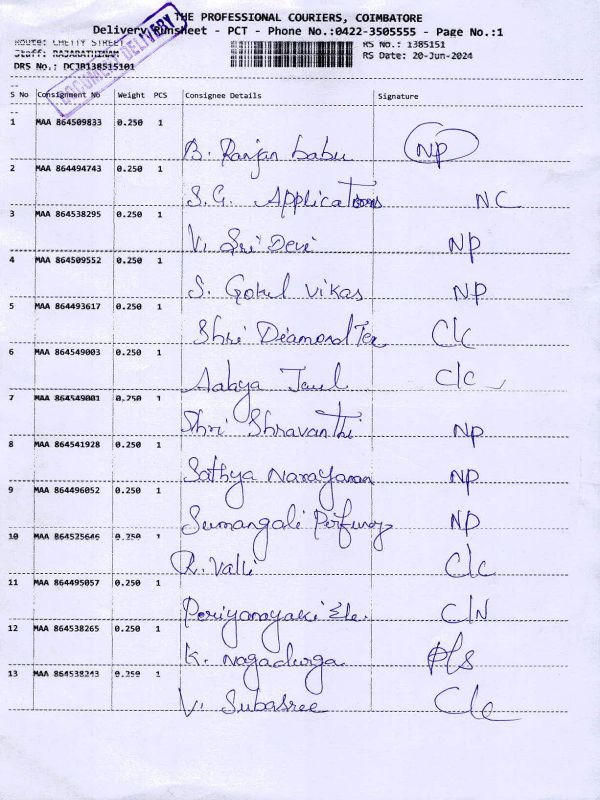 THE PROFESSIONAL COURIERS, COIMBATORE
Delivery Runsheet - PCT - Phone No.:0422-3505555 - Page No.:1
Route: CHETTY STREET RS No.: 1385151
Staff: RAJARATHINAM RS Date: 20-Jun-2024
DRS No.: DCJB138515101
DOCUMENT DELIVERY
S No Consignment No Weight PCS Consignee Details Signature
1 MAA 864509833 0.250 1
B. Ranjan babu NP
2 MAA 864494743 0.250 1
S.G. Applications NC
3 MAA 864538295 0.250 1
V. Sri Devi NP
4 MAA 864509552 0.250 1
S. Gokul Vikas NP
5 MAA 864493617 0.250 1
Shri Diamond Tex C/c
6 MAA 864549003 0.250 1
C/c
7 MAA 864549001 0.250 1
Shri Shravanthi NP
8 MAA 864541928 0.250 1
Sathya Narayanan NP
9 MAA 864496052 0.250 1
Sumangali NP
10 MAA 864525646 0.250 1
R. Valli C/c
11 MAA 864495057 0.250 1
Periyanayaki Ele. C/N
12 MAA 864538265 0.250 1
K. Nagadurga P/s
13 MAA 864538243 0.250 1
V. Subasree C/c